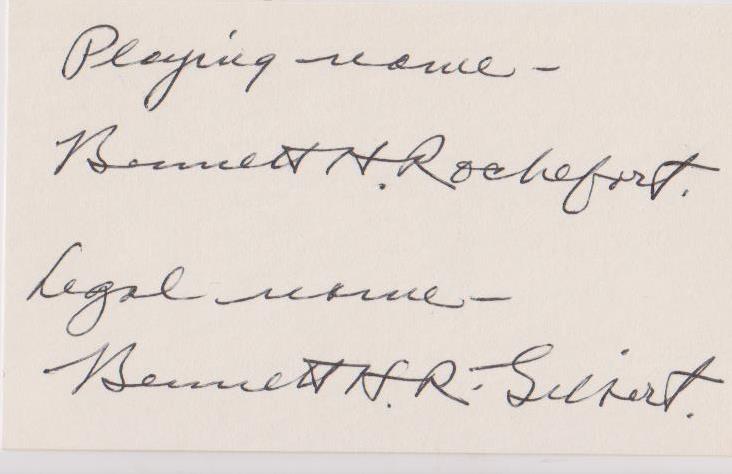 Playing name -
Bennett H. Rochefort.
Legal name -
Bennett H. R. Gilbert.